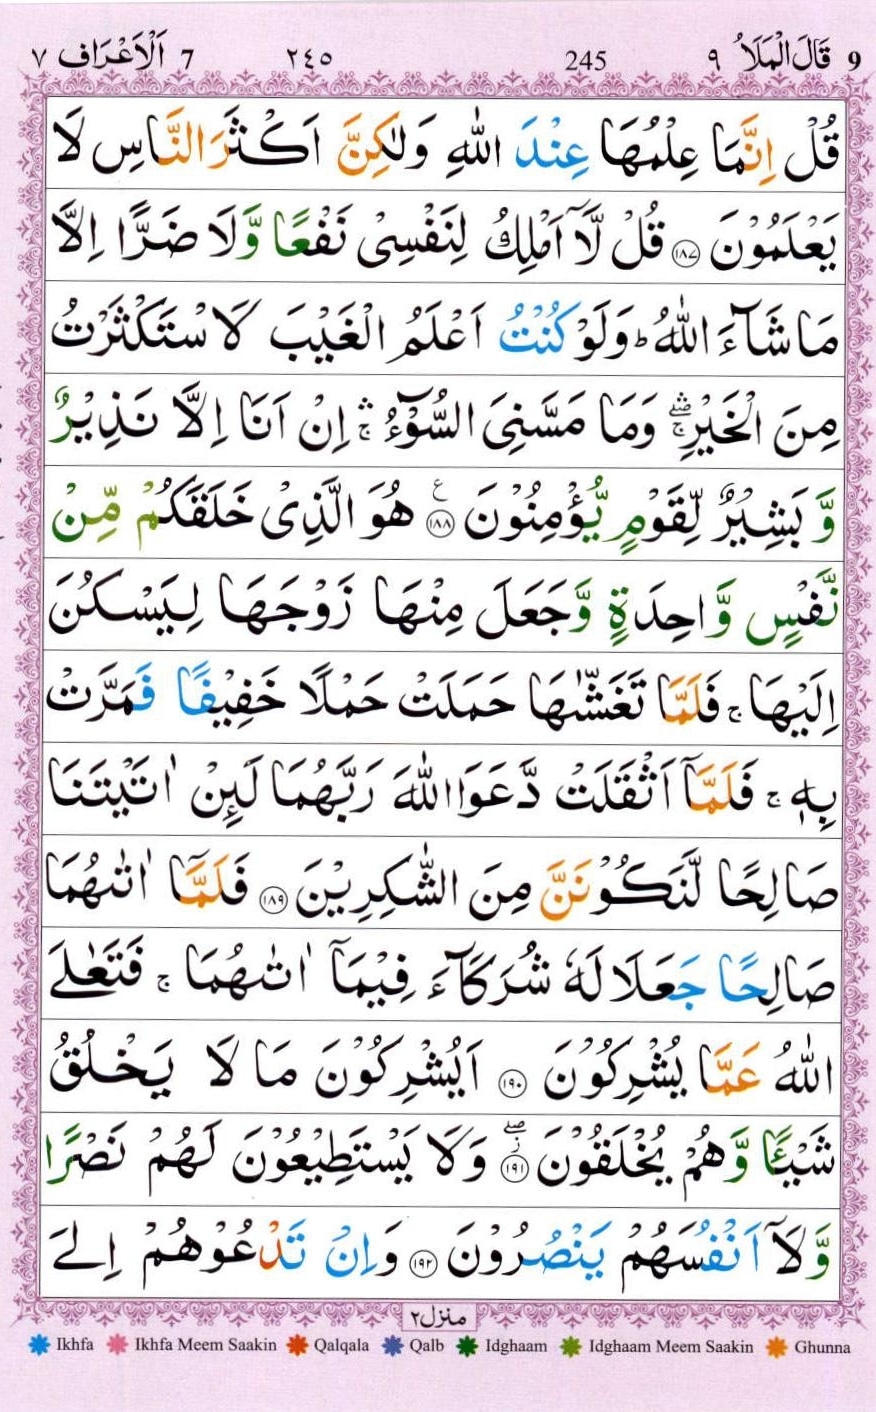 9 قَالَ الْمَلَاُ ٩ 245 ٢٤٥ 7 اَلْاَعْرَاف ٧
قُلْ اِنَّمَا عِلْمُهَا عِنْدَ اللّٰهِ وَلٰكِنَّ اَكْثَرَ النَّاسِ لَا
يَعْلَمُوْنَ ﴿١٨٧﴾ قُلْ لَّاۤ اَمْلِكُ لِنَفْسِىْ نَفْعًا وَّلَا ضَرًّا اِلَّا
مَا شَآءَ اللّٰهُ ؕ وَلَوْ كُنْتُ اَعْلَمُ الْغَيْبَ لَا سْتَكْثَرْتُ
مِنَ الْخَيْرِ ۛۖۚ وَمَا مَسَّنِىَ السُّوْٓءُ ۛۚ اِنْ اَنَا اِلَّا نَذِيْرٌ
وَّ بَشِيْرٌ لِّقَوْمٍ يُّؤْمِنُوْنَ ﴿١٨٨﴾ ع هُوَ الَّذِىْ خَلَقَكُمْ مِّنْ
نَّفْسٍ وَّاحِدَةٍ وَّجَعَلَ مِنْهَا زَوْجَهَا لِيَسْكُنَ
اِلَيْهَا ۚ فَلَمَّا تَغَشّٰٮهَا حَمَلَتْ حَمْلًا خَفِيْفًا فَمَرَّتْ
بِهٖ ۚ فَلَمَّاۤ اَثْقَلَتْ دَّعَوَا اللّٰهَ رَبَّهُمَا لَئِنْ اٰتَيْتَنَا
صَالِحًا لَّنَكُوْنَنَّ مِنَ الشّٰكِرِيْنَ ﴿١٨٩﴾ فَلَمَّاۤ اٰتٰٮهُمَا
صَالِحًا جَعَلَا لَهٗ شُرَكَآءَ فِيْمَاۤ اٰتٰٮهُمَا ۚ فَتَعٰلَى
اللّٰهُ عَمَّا يُشْرِكُوْنَ ﴿١٩٠﴾ اَيُشْرِكُوْنَ مَا لَا يَخْلُقُ
شَيْـًٔا وَّهُمْ يُخْلَقُوْنَ ﴿١٩١﴾ۖز وَلَا يَسْتَطِيْعُوْنَ لَهُمْ نَصْرًا
وَّلَاۤ اَنْفُسَهُمْ يَنْصُرُوْنَ ﴿١٩٢﴾ وَاِنْ تَدْعُوْهُمْ اِلَى
منزل٢
Ikhfa Ikhfa Meem Saakin Qalqala Qalb Idghaam Idghaam Meem Saakin Ghunna